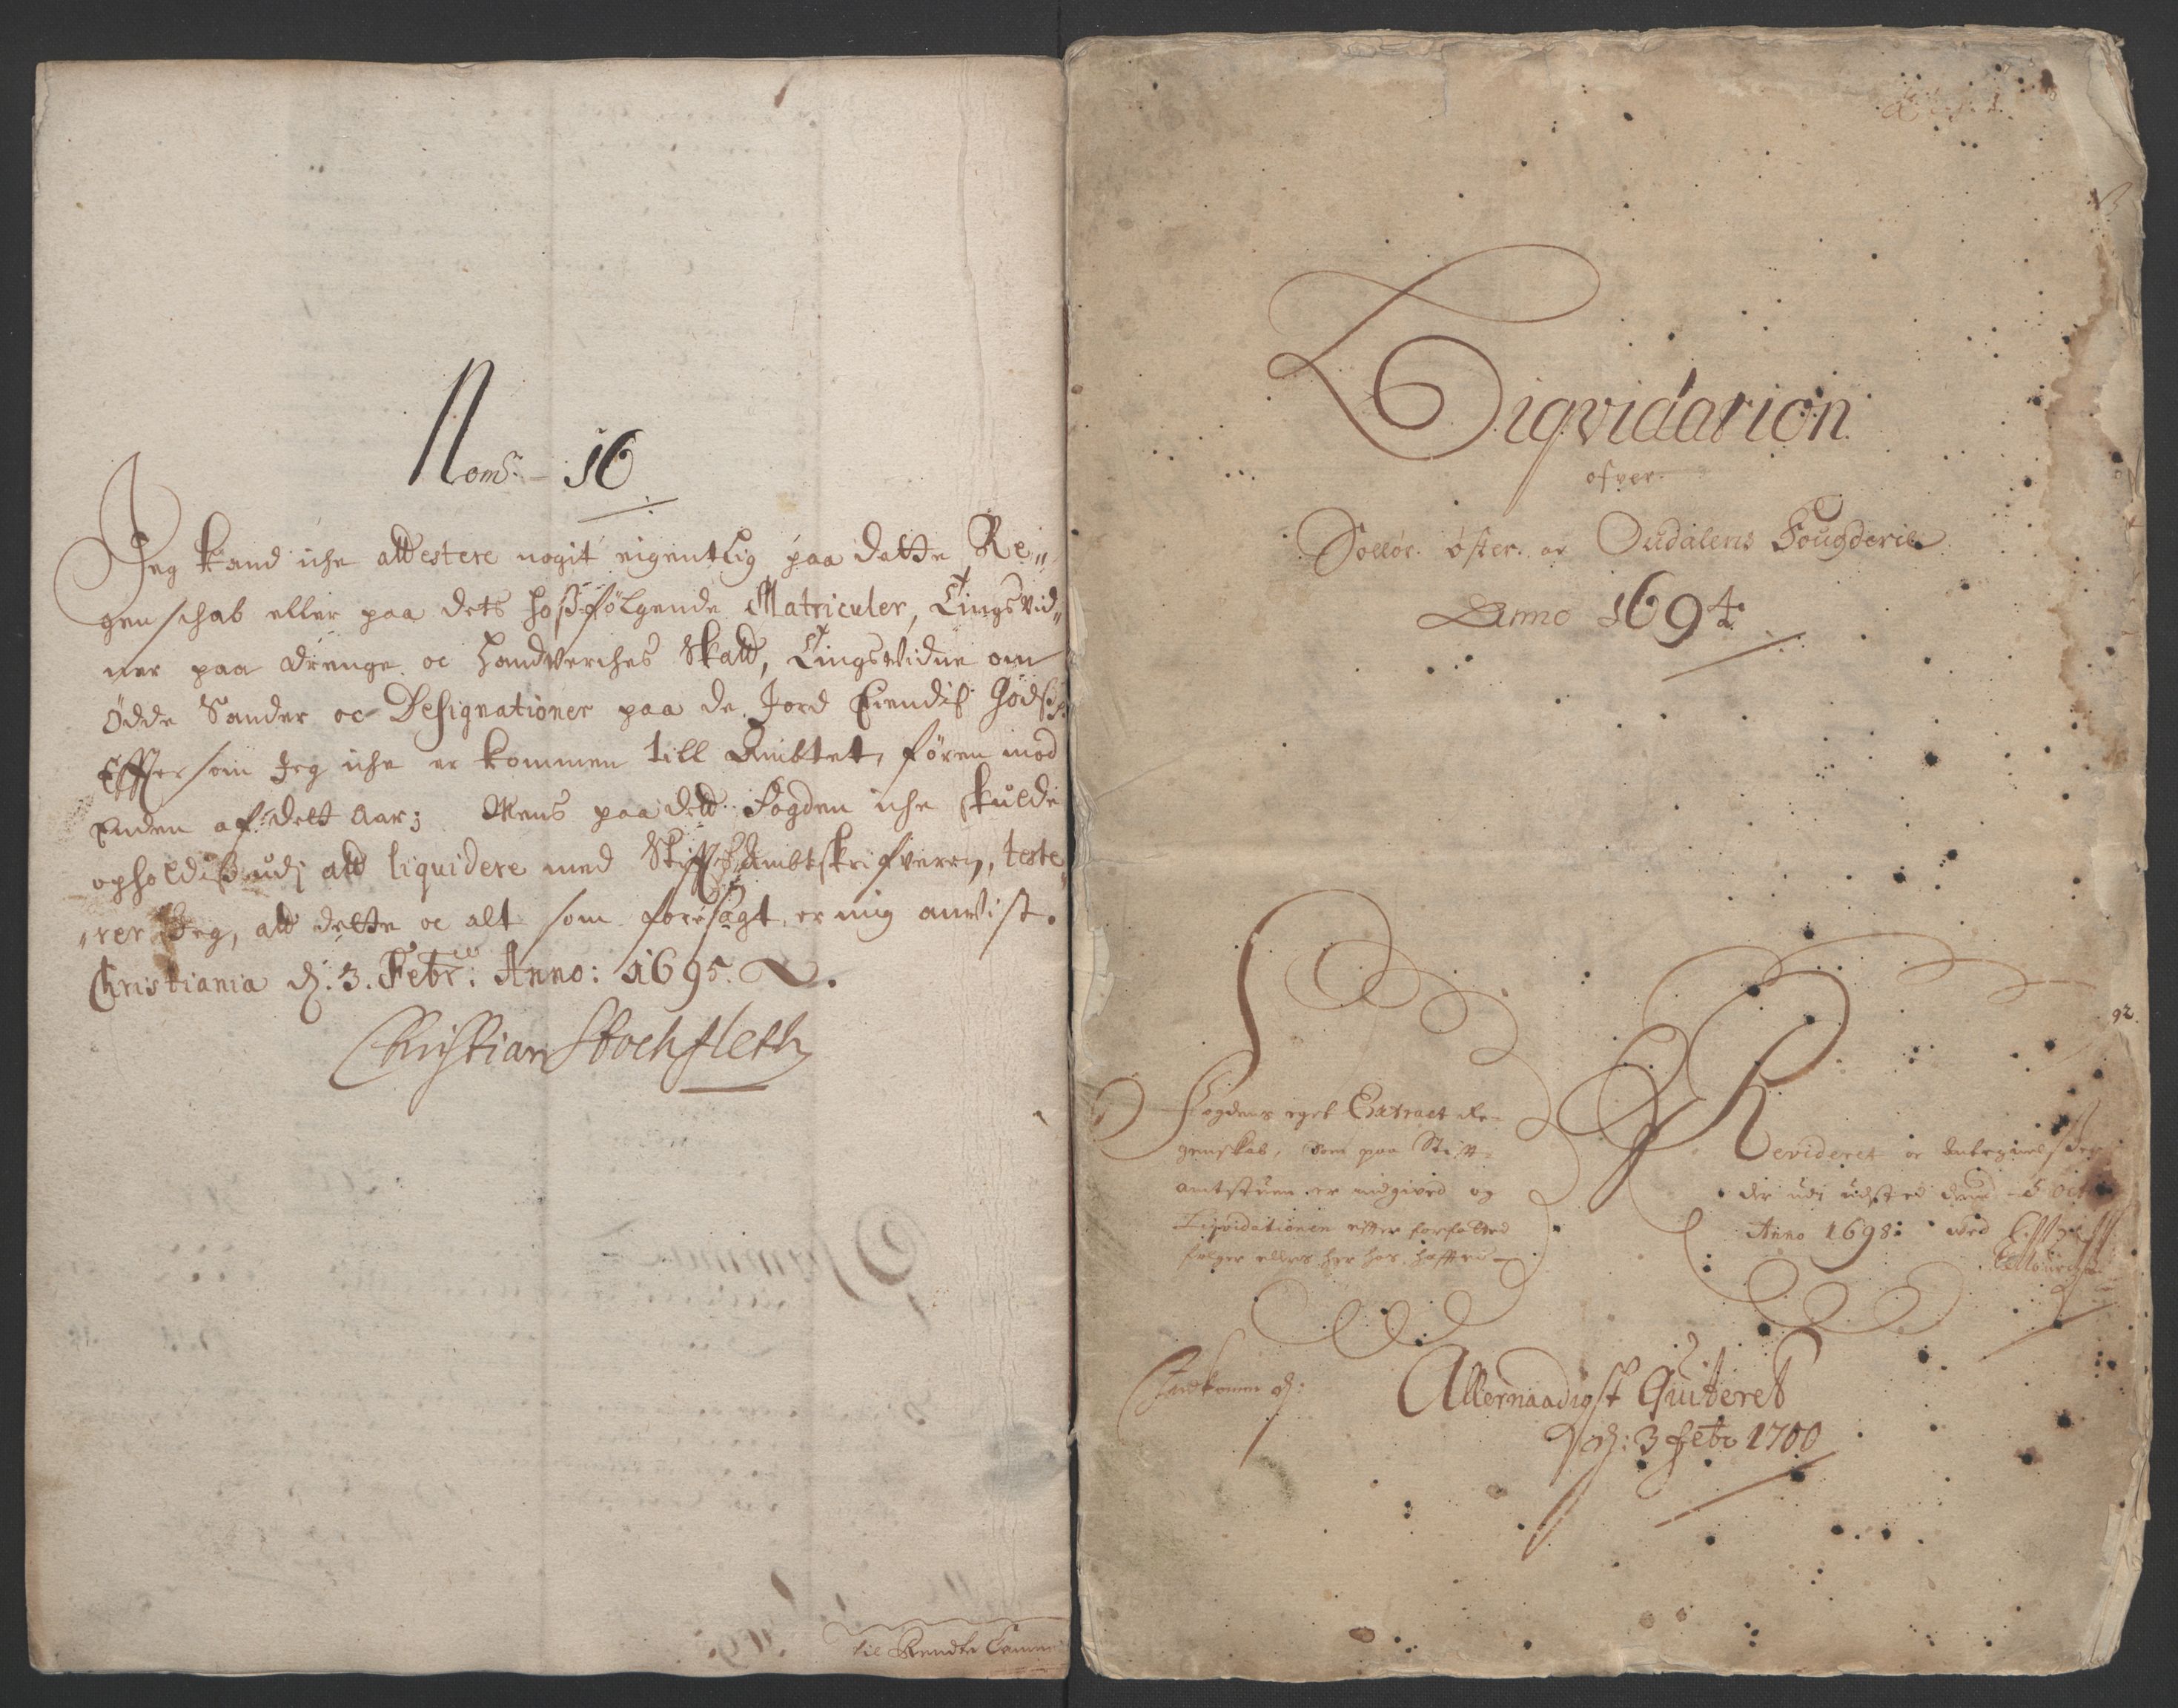 Nom: 16
Jeg kand iche attestere nogit eigentlig paa dette Re„
genschab eller paa dets hoßfølgende Matriculer, Tingsvid„
ner paa drenge oc Handverches Skatt, Tingsvidne om
Ødde Sauder oc Designationer paa de Jord Eiendis Godß,
Effter som Jeg iche er kommen till Ambtet, føren mod
Enden af dett Aar; Mens paa dett Fogden iche skulde
opholdiß udj att liquidere med Stiffts Ambtskrifveren, teste„
„rer Jeg, att dette oc alt som foresagt er mig anvist.
Christiania d: 3. Febr: Anno: 1695.
Christian Stockfleth
til Rendte Camer
Liqvidation
ofver
Solløer Øster oc Oudalens Fougderie
Anno 1694
Fogdens eget Extract Re-
genskab, som paa Stifft
amtstuen er indgived og
Liqvidationen efter forfatted
følger ellers her hos hefftet
Revideret oc Antegnelser
der udi udsted dend 5 Oct
Anno 1698: ved
Indkommen d:
Allernaadigst Quiteret
d: 3 Febr 1700
92.